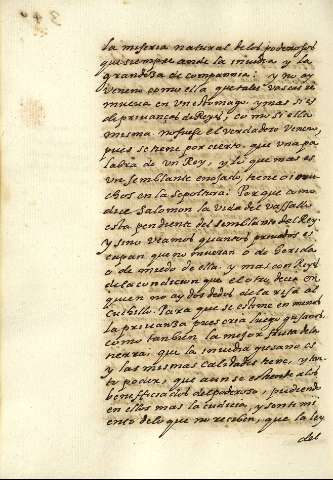 la miseria natural de los poderosos
que siempre ande la inuidia y la
grandeza de compannia: y no ay
veneno como ella que tales vascas
mueua en vn estomago, y mas si es
de priuanças de Reyes, como si ella
misma no fuese el verdadero Veneno,
pues se tiene por cierto que vna pa
labra de vn Rey, y lo que mas es
vn semblante enojado, tiene a mu
chos en la sepoltura: Porque como
dice Salomon la vida del vassallo
esta pendiente del semblante del Rey.
y sino veamos quantos priuados es
capan que no mueran ó de perdida
o de miedo de ella. y mas con Reyes
de la condicion que el otro decia
quien no ay dos dedos de la risa al
cuchillo. Para que se estime en menos
la priuanza pues cria luego gusanos
como tanbien la mejor fruta de la
tierra, que la inuidia gusano es
y las mismas calidades tiene, y tan
to poder, que aun se estiende a los
beneficiados del poderoso, pudiendo
en ellos mas la cudicia, y sentimi
ento de lo que no reciben, que la ley
del